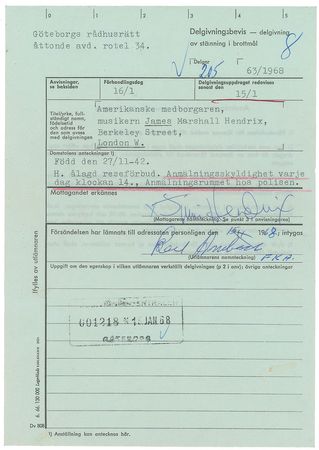 Göteborgs rådhusrätt
åttonde avd. rotel 34.
Delgivningsbevis — delgivning
av stämning i brottmål
8
Dnr/mr
V 205 63/1968
Anvisningar, se baksidan
Förhandlingsdag
16/1
Delgivningsuppdraget redovisas senast den
15/1
Titel/yrke, fullständigt namn, födelsetid och adress för den som avses med delgivningen
Amerikanske medborgaren,
musikern James Marshall Hendrix,
Berkeley Street,
London W.
Domstolens anteckningar 1)
Född den 27/11-42.
H. ålagd reseförbud. Anmälningsskyldighet varje
dag klockan 14., Anmälningsrummet hos polisen.
Mottagandet erkännes
Jimi Hendrix
(Mottagarens namnteckning, se punkt 3 i anvisningarna)
Försändelsen har lämnats till adressaten personligen den 1968, intygas
(Utlämnarens namnteckning)
Uppgift om den egenskap i vilken utlämnaren verkställt delgivningen (p 2 i anv); övriga anteckningar
001218 *15.JAN68
GÖTEBORG
Ifylles av utlämnaren
Dv 808
1) Anställning kan antecknas här.